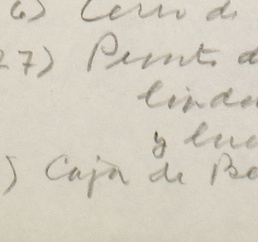 6) Cerro de
27) Punta d
linde
y lue
) Caja de Be